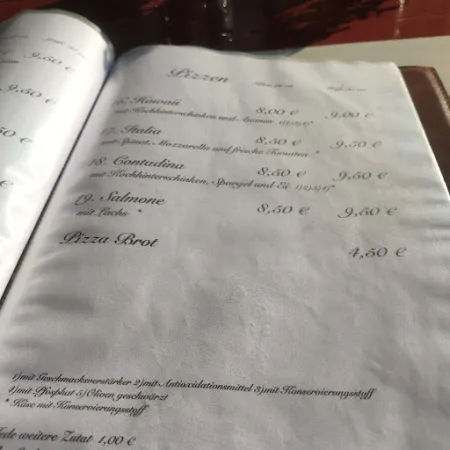 9,50 €
9,50 €
50 €
50 €
Pizzen
16. Hawaii 8,00 € 9,00 €
mit Hochhinterschinken und Ananas
17. Italia 8,50 € 9,50 €
mit Spinat, Mozzarella und frische Tomaten *
18. Contadina 8,50 € 9,50 €
mit Hochhinterschinken, Spargel und Ei
19. Salmone 8,50 € 9,50 €
mit Lachs *
Pizza Brot 4,50 €
1)mit Geschmacksverstärker 2)mit Antioxidationsmittel 3)mit Konservierungsstoff
4)mit Phosphat 5)Oliven geschwärzt
* Käse mit Konservierungsstoff
Jede weitere Zutat 1,00 €